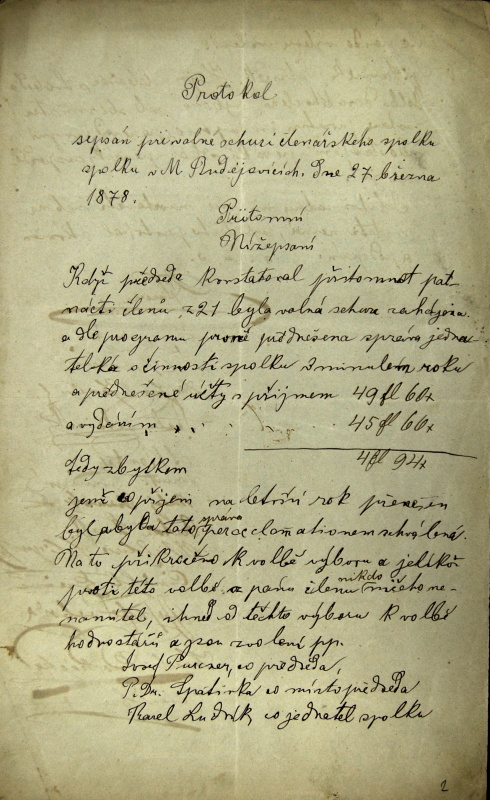 Protokol
sepsan při valné schuzi čtenářského spolku
spolku v M. Budějovicích. Dne 27 března
1878.
Přitomní
Nížepsaní
Když předseda konstatoval přitomnost pat-
nácti členů z 21 byla valná schuze zahájena
a dle programu prvně přednešena zpráva jedna-
telská o činnosti spolku v minulém roku
a přednešené účty s přijmem 49 fl 60x
a vydáním 45 fl 66x
tedy zbytkem 4 fl 94x
jenž co příjem na letošní rok přenešen
byl a byla tato zpráva per acclamationem schválená.
Na to přikročeno k volbě výboru a jelikož
proti této volbě a panu členu nikdo ničeho ne-
namítal, ihned od těchto výboru k volbě
hodnostářů a jsou zvolení pp.
Josef Purcner, co předseda,
P. Dn. Spatinka co místopředseda
Karel Ludník, co jednatel spolku
2